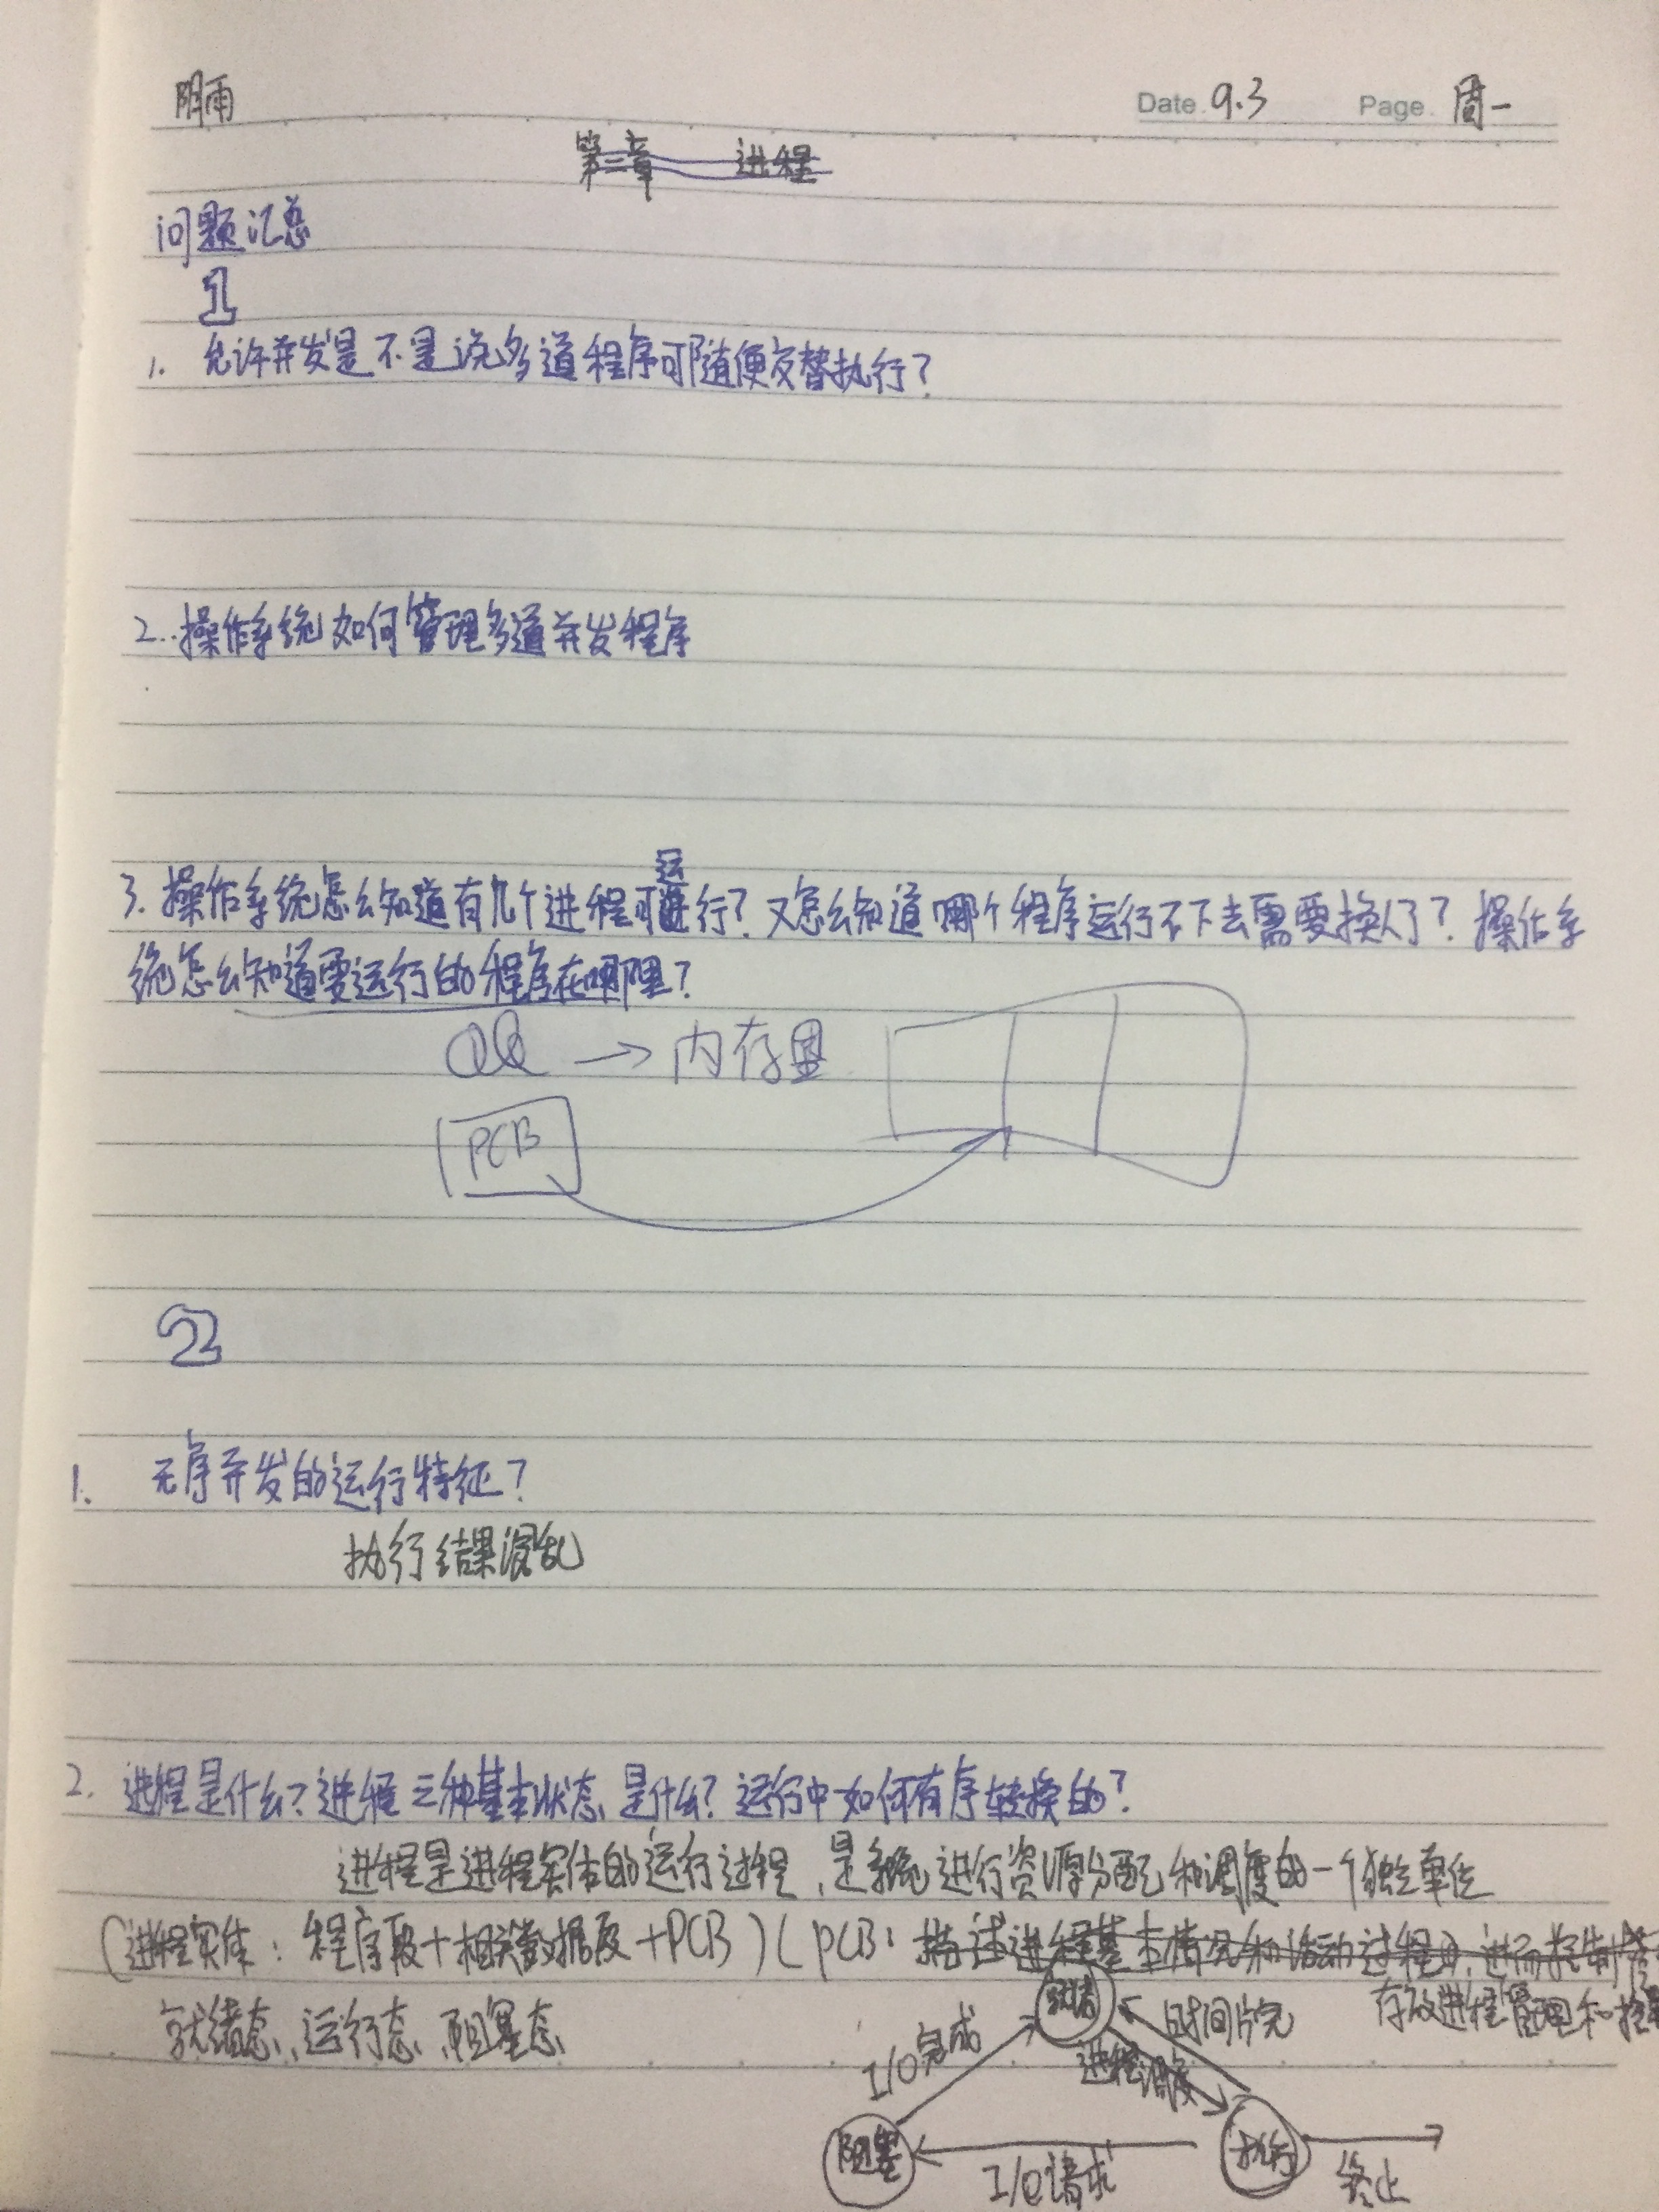 阴雨 Date 9.3 Page. 周一
第二章 进程
问题汇总
1
1. 允许并发是不是说多道程序可随便交替执行？
2. 操作系统如何管理多道并发程序
运
3. 操作系统怎么知道有几个进程可进行？又怎么知道哪个程序运行不下去需要换人了？操作系
统怎么知道要运行的程序在哪里？
QQ → 内存里
PCB
2
1. 无序并发的运行特征？
执行结果混乱
2. 进程是什么？进程三种基本状态是什么？运行中如何有序转换的？
进程是进程实体的运行过程，是系统进行资源分配和调度的一个独立单位
（进程实体：程序段+相关数据段+PCB）（PCB：描述进程基本情况和活动过程，进而控制
存放进程管理和控
就绪态、运行态、阻塞态
就绪
I/O完成
时间片完
进程调度
阻塞
执行
I/O请求
终止